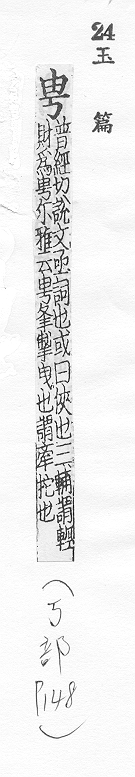 24
玉篇
甹
普經切說文亟詞也或曰俠也三輔謂輕
財為甹尔雅云甹夆掣曳也謂牽拕也
(丂部
P148)